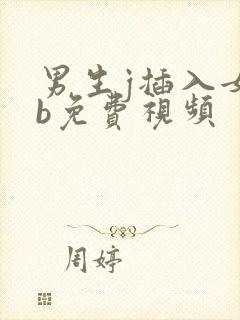 男生j插入女
b免費視頻
周婷